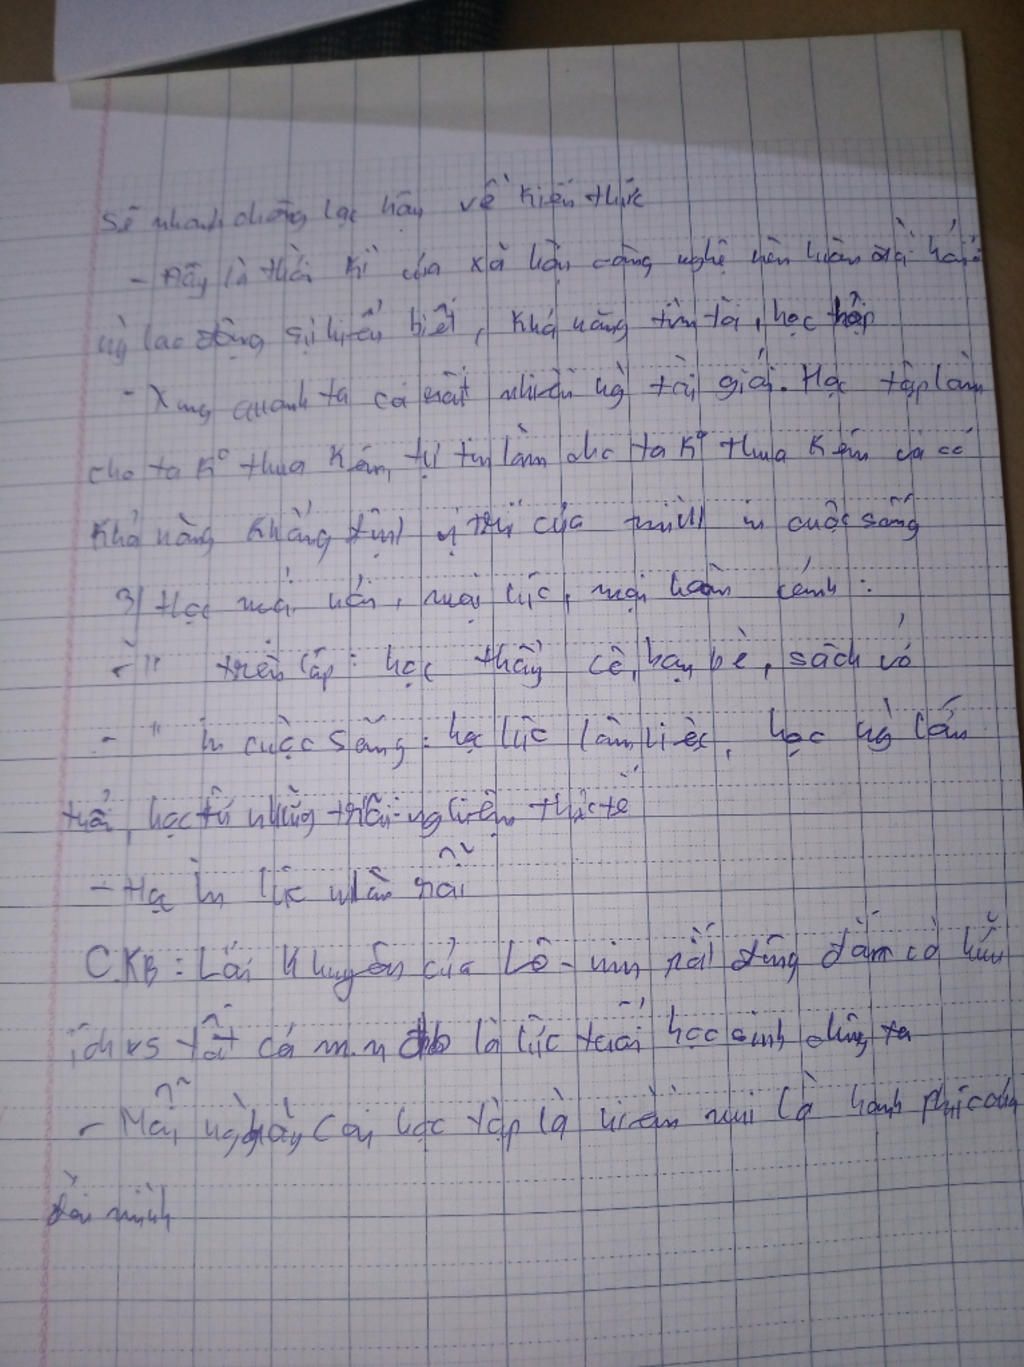 sẽ nhanh chóng lạc hậu về kiến thức
- Đây là thời kì của xã hội công nghệ nên luôn đòi hỏi ở
ng̀ lao động sự hiểu biết, khả năng tìm tòi, học tập
- Xung quanh ta có rất nhiều ng̀ tài giỏi. Học tập làm
cho ta K° thua kém, tự tin làm cho ta K° thua kém và có
khả năng khẳng định vị trí của mình in cuộc sống
3/ Học mọi nơi, mọi lúc, mọi hoàn cảnh:
- " trên lớp: học thầy cô, bạn bè, sách vở
- " in cuộc sống: học lúc làm việc, học ng̀ lớn
tuổi, học từ những trải nghiệm thực tế
- Học in lúc nhàn rỗi
C. KB: Lời khuyên của Lê-nin rất đúng đắn có hữu
ích vs tất cả m.n là lúc tuổi học sinh chúng ta
- Mỗi ng̀ hãy coi học tập là niềm vui là hạnh phúc của
đời mình